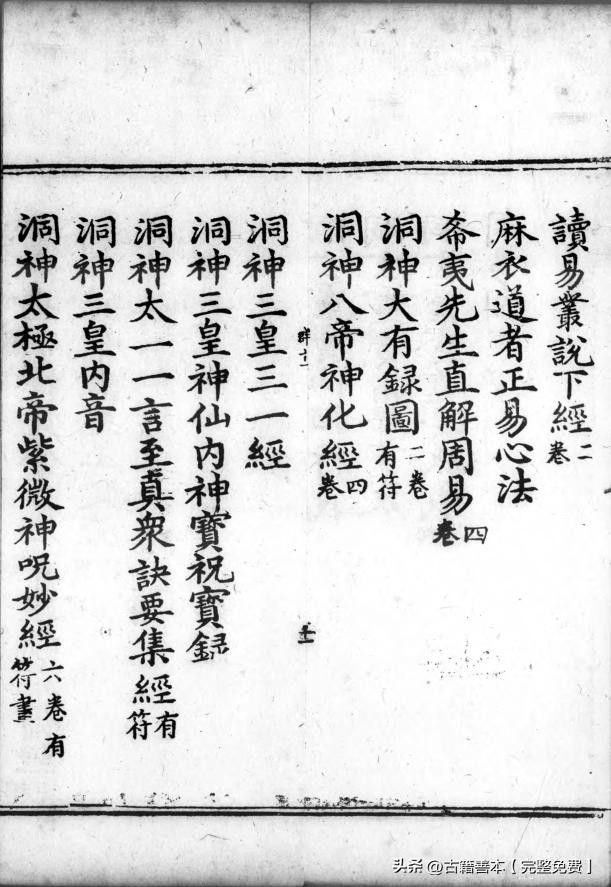 讀易叢說下經二卷
麻衣道者正易心法
希夷先生直解周易四卷
洞神大有録圖二卷有符
洞神八帝神化經四卷
洞神三皇三一經
洞神三皇神仙内神寶祝寶録
洞神太一一言至真衆訣要集經有符
洞神三皇内音
洞神太極北帝紫微神呪妙經六卷有符畫
头条 @古籍善本【完整免费】